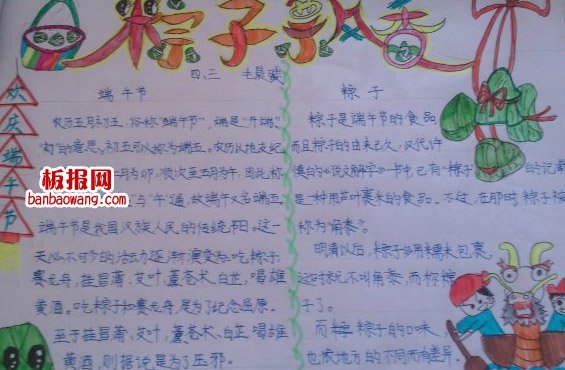 粽子
欢庆端午节
四.三
端午节
农历五月初五，俗称"端午节"，端是"开端"、
"初"的意思。初五可以称为端五。农历以地支纪
月为卯，顺次至五月为午，因此称
与"午"通，故端午又名端五。
端午节是我国汉族人民的传统节日。这一
天必不可少的活动逐渐演变为：吃粽子，
赛龙舟，挂菖蒲、艾叶，薰苍术、白芷，喝雄
黄酒。吃粽子和赛龙舟，是为了纪念屈原。
至于挂菖蒲、艾叶，薰苍术、白芷，喝雄
黄酒，则据说是为了压邪。
粽子
粽子是端午节的食品
而且粽子的由来已久，汉代许
慎的《说文解字》一书中已有"粽子
的记载
是一种用芦叶裹米的食品。不过，在那时，粽子被
称为"角黍"。
明清以后，粽子多用糯米包裹，
这时就不叫角黍，而称粽
子了。
而粽子的口味
也依地方的不同而有差异。
板报网
banbaowang.com